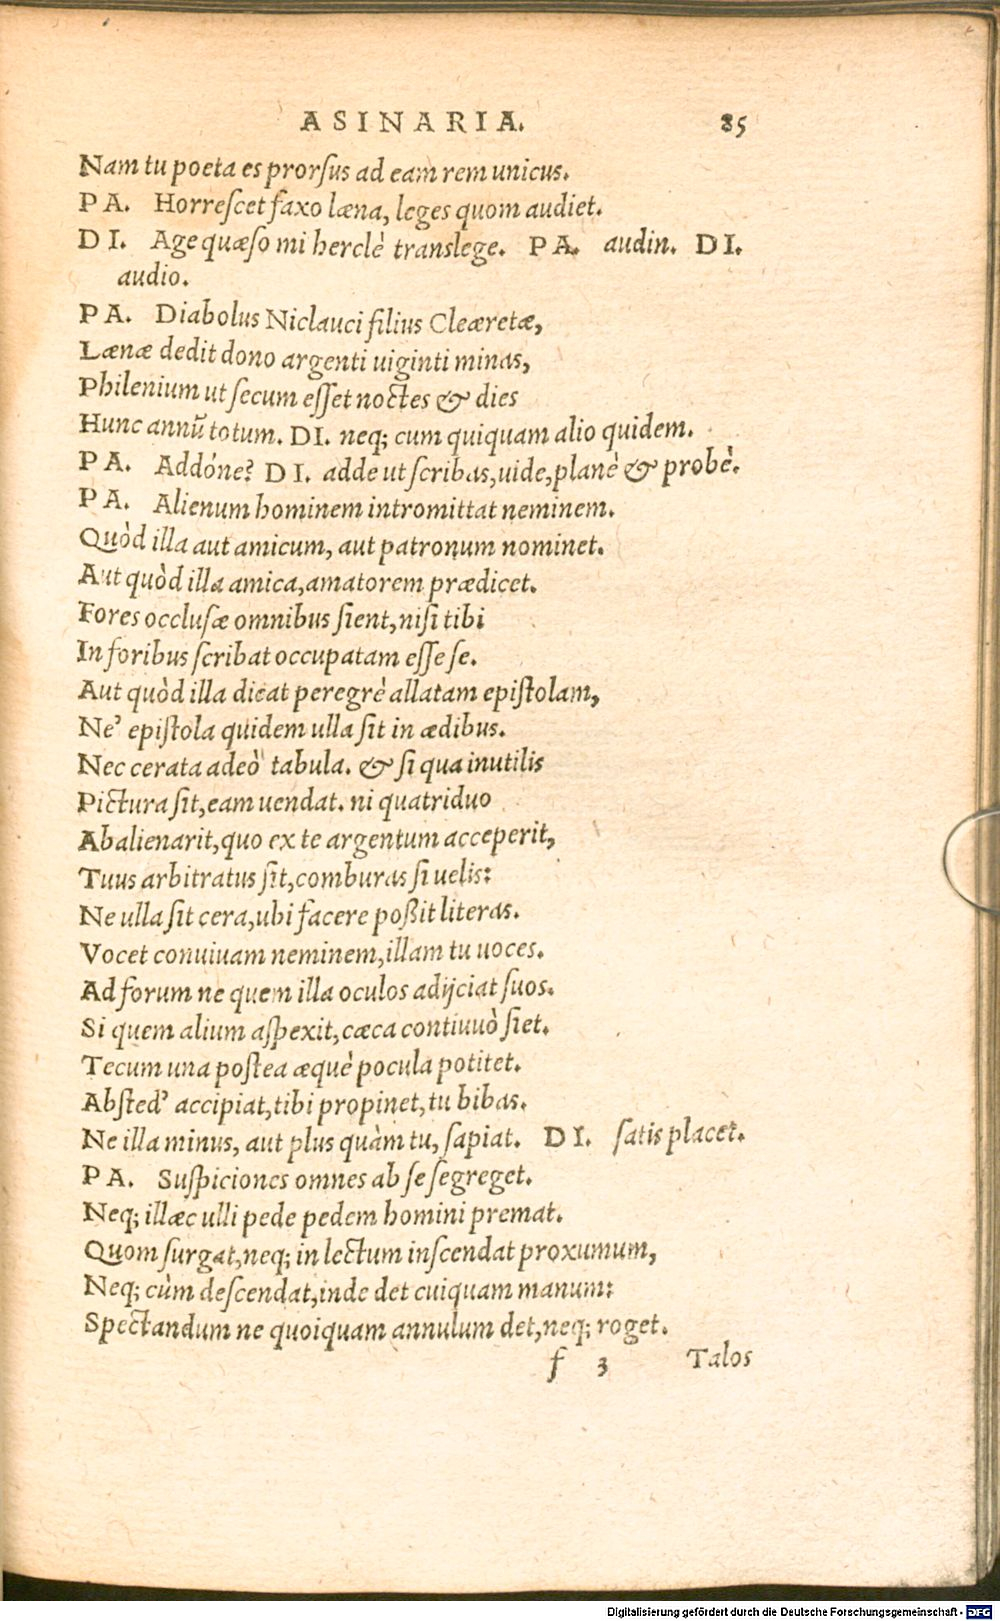 ASINARIA. 85
Nam tu poeta es prorſus ad eam rem unicus.
PA. Horreſcet faxo læna, leges quom audiet.
DI. Age quæſo mi herclè translege. PA. audin. DI.
audio.
PA. Diabolus Niclauci filius Cleæretæ,
Lænæ dedit dono argenti uiginti minas,
Philenium ut ſecum eſſet noctes & dies
Hunc annũ totum. DI. neq; cum quiquam alio quidem.
PA. Addóne? DI. adde ut ſcribas, uide, planè & probè.
PA. Alienum hominem intromittat neminem.
Quòd illa aut amicum, aut patronum nominet.
Aut quòd illa amica, amatorem prædicet.
Fores occluſæ omnibus ſient, niſi tibi
In foribus ſcribat occupatam eſſe ſe.
Aut quòd illa dicat peregrè allatam epiſtolam,
Ne’ epiſtola quidem ulla ſit in ædibus.
Nec cerata adeò tabula. & ſi qua inutilis
Pictura ſit, eam uendat. ni quatriduo
Abalienarit, quo ex te argentum acceperit,
Tuus arbitratus ſit, comburas ſi uelis:
Ne ulla ſit cera, ubi facere poßit literas.
Vocet conuiuam neminem, illam tu uoces.
Ad forum ne quem illa oculos adijciat ſuos.
Si quem alium aſpexit, cæca contiuuò ſiet.
Tecum una poſtea æquè pocula potitet.
Abſted’ accipiat, tibi propinet, tu bibas.
Ne illa minus, aut plus quàm tu, ſapiat. DI. ſatis placet.
PA. Suſpiciones omnes ab ſe ſegreget.
Neq; illæc ulli pede pedem homini premat.
Quom ſurgat, neq; in lectum inſcendat proxumum,
Neq; cùm deſcendat, inde det cuiquam manum:
Spectandum ne quoiquam annulum det, neq; roget.
f 3 Talos
Digitalisierung gefördert durch die Deutsche Forschungsgemeinschaft - DFG